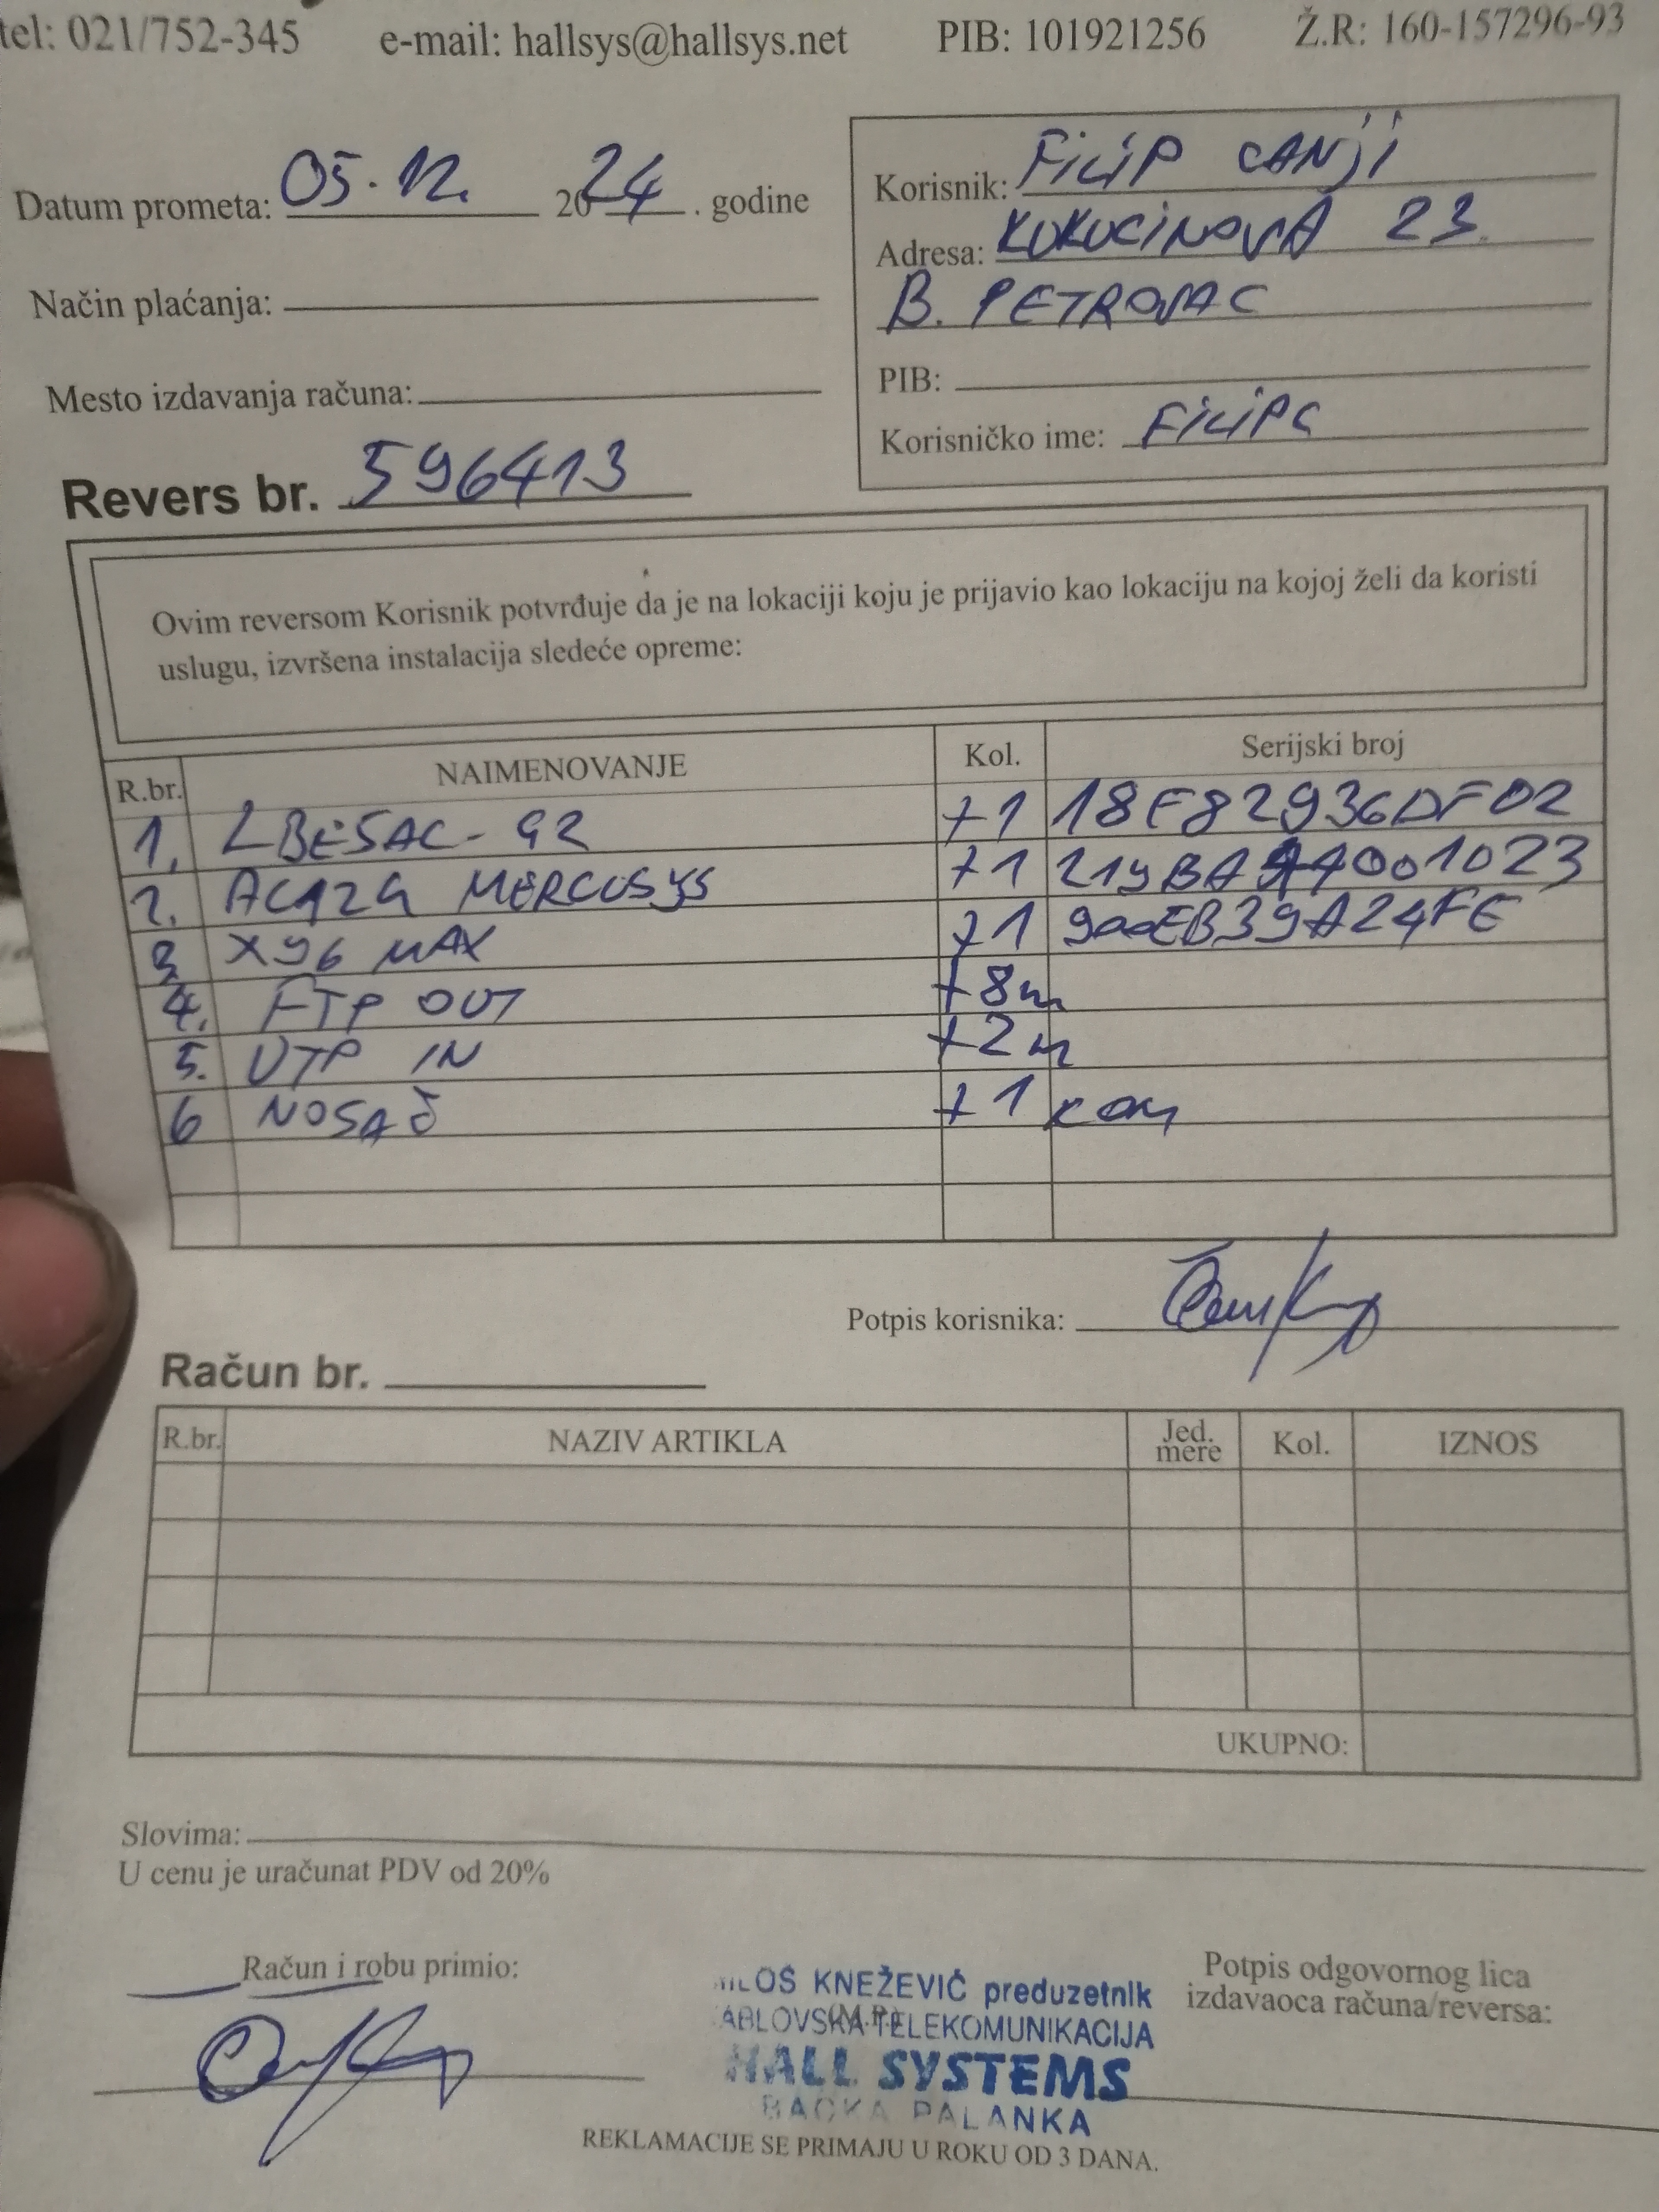 tel: 021/752-345 e-mail: hallsys@hallsys.net PIB: 101921256 Ž.R: 160-157296-93
Datum prometa: 05.12. 2024. godine
Korisnik: FILIP CANJI
Adresa: KUKUČINOVA 23.
B. PETROVAC
Način plaćanja:
PIB:
Mesto izdavanja računa:
Korisničko ime: FILIPC
Revers br. 596413
Ovim reversom Korisnik potvrđuje da je na lokaciji koju je prijavio kao lokaciju na kojoj želi da koristi
uslugu, izvršena instalacija sledeće opreme:
R.br. NAIMENOVANJE Kol. Serijski broj
1. LBE5AC-92 +1 18E82936DF02
2. AC12G MERCUSYS +1
3 X96 MAX +1
4. FTP OUT +8m
5. UTP IN +2m
6 NOSAČ +1 KOM
Potpis korisnika:
Račun br.
R.br. NAZIV ARTIKLA Jed. mere Kol. IZNOS
UKUPNO:
Slovima:
U cenu je uračunat PDV od 20%
Račun i robu primio:
Potpis odgovornog lica
izdavaoca računa/reversa:
MILOŠ KNEŽEVIĆ preduzetnik
(M.P.)
KABLOVSKA TELEKOMUNIKACIJA
HALL SYSTEMS
BAČKA PALANKA
REKLAMACIJE SE PRIMAJU U ROKU OD 3 DANA.